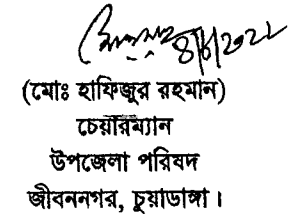 ৪/৮/২০২২
(মোঃ হাফিজুর রহমান)
চেয়ারম্যান
উপজেলা পরিষদ
জীবননগর, চুয়াডাঙ্গা।